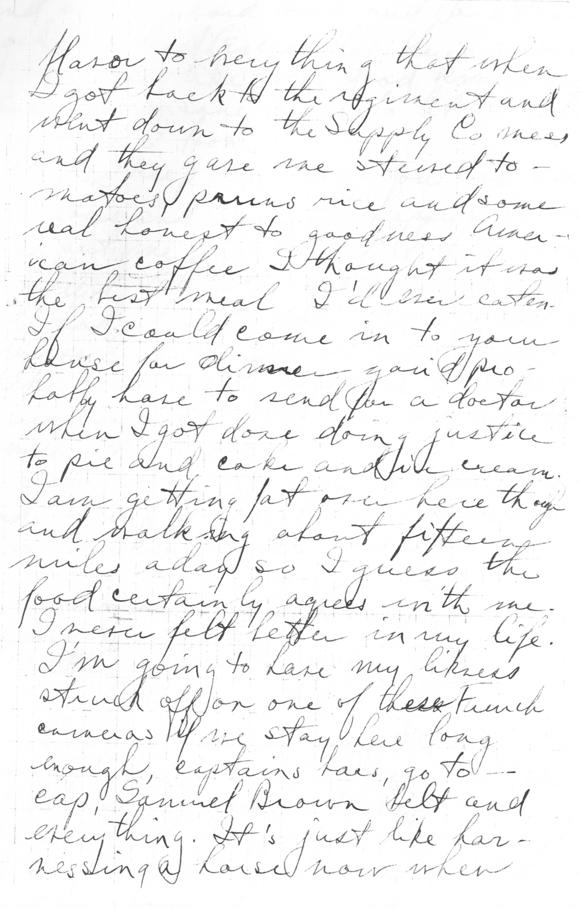 flavor to everything that when
I got back to the regiment and
went down to the Supply Co mess
and they gave me stewed to-
matoes, pruns rice and some
real honest to goodness Amer-
ican coffee I thought it was
the best meal I'd ever eaten.
If I could come in to your
house for dinner you'd pro-
bably have to send for a doctor
when I got done doing justice
to pie and cake and ice cream.
I am getting fat over here though
and walking about fifteen
miles a day so I guess the
food certainly agrees with me.
I never felt better in my life.
I'm going to have my likness
struck off on one of these French
cameras if we stay here long
enough, captains bars, go to --
cap, Samuel Brown belt and
everything. It's just like har-
nessing a horse now when